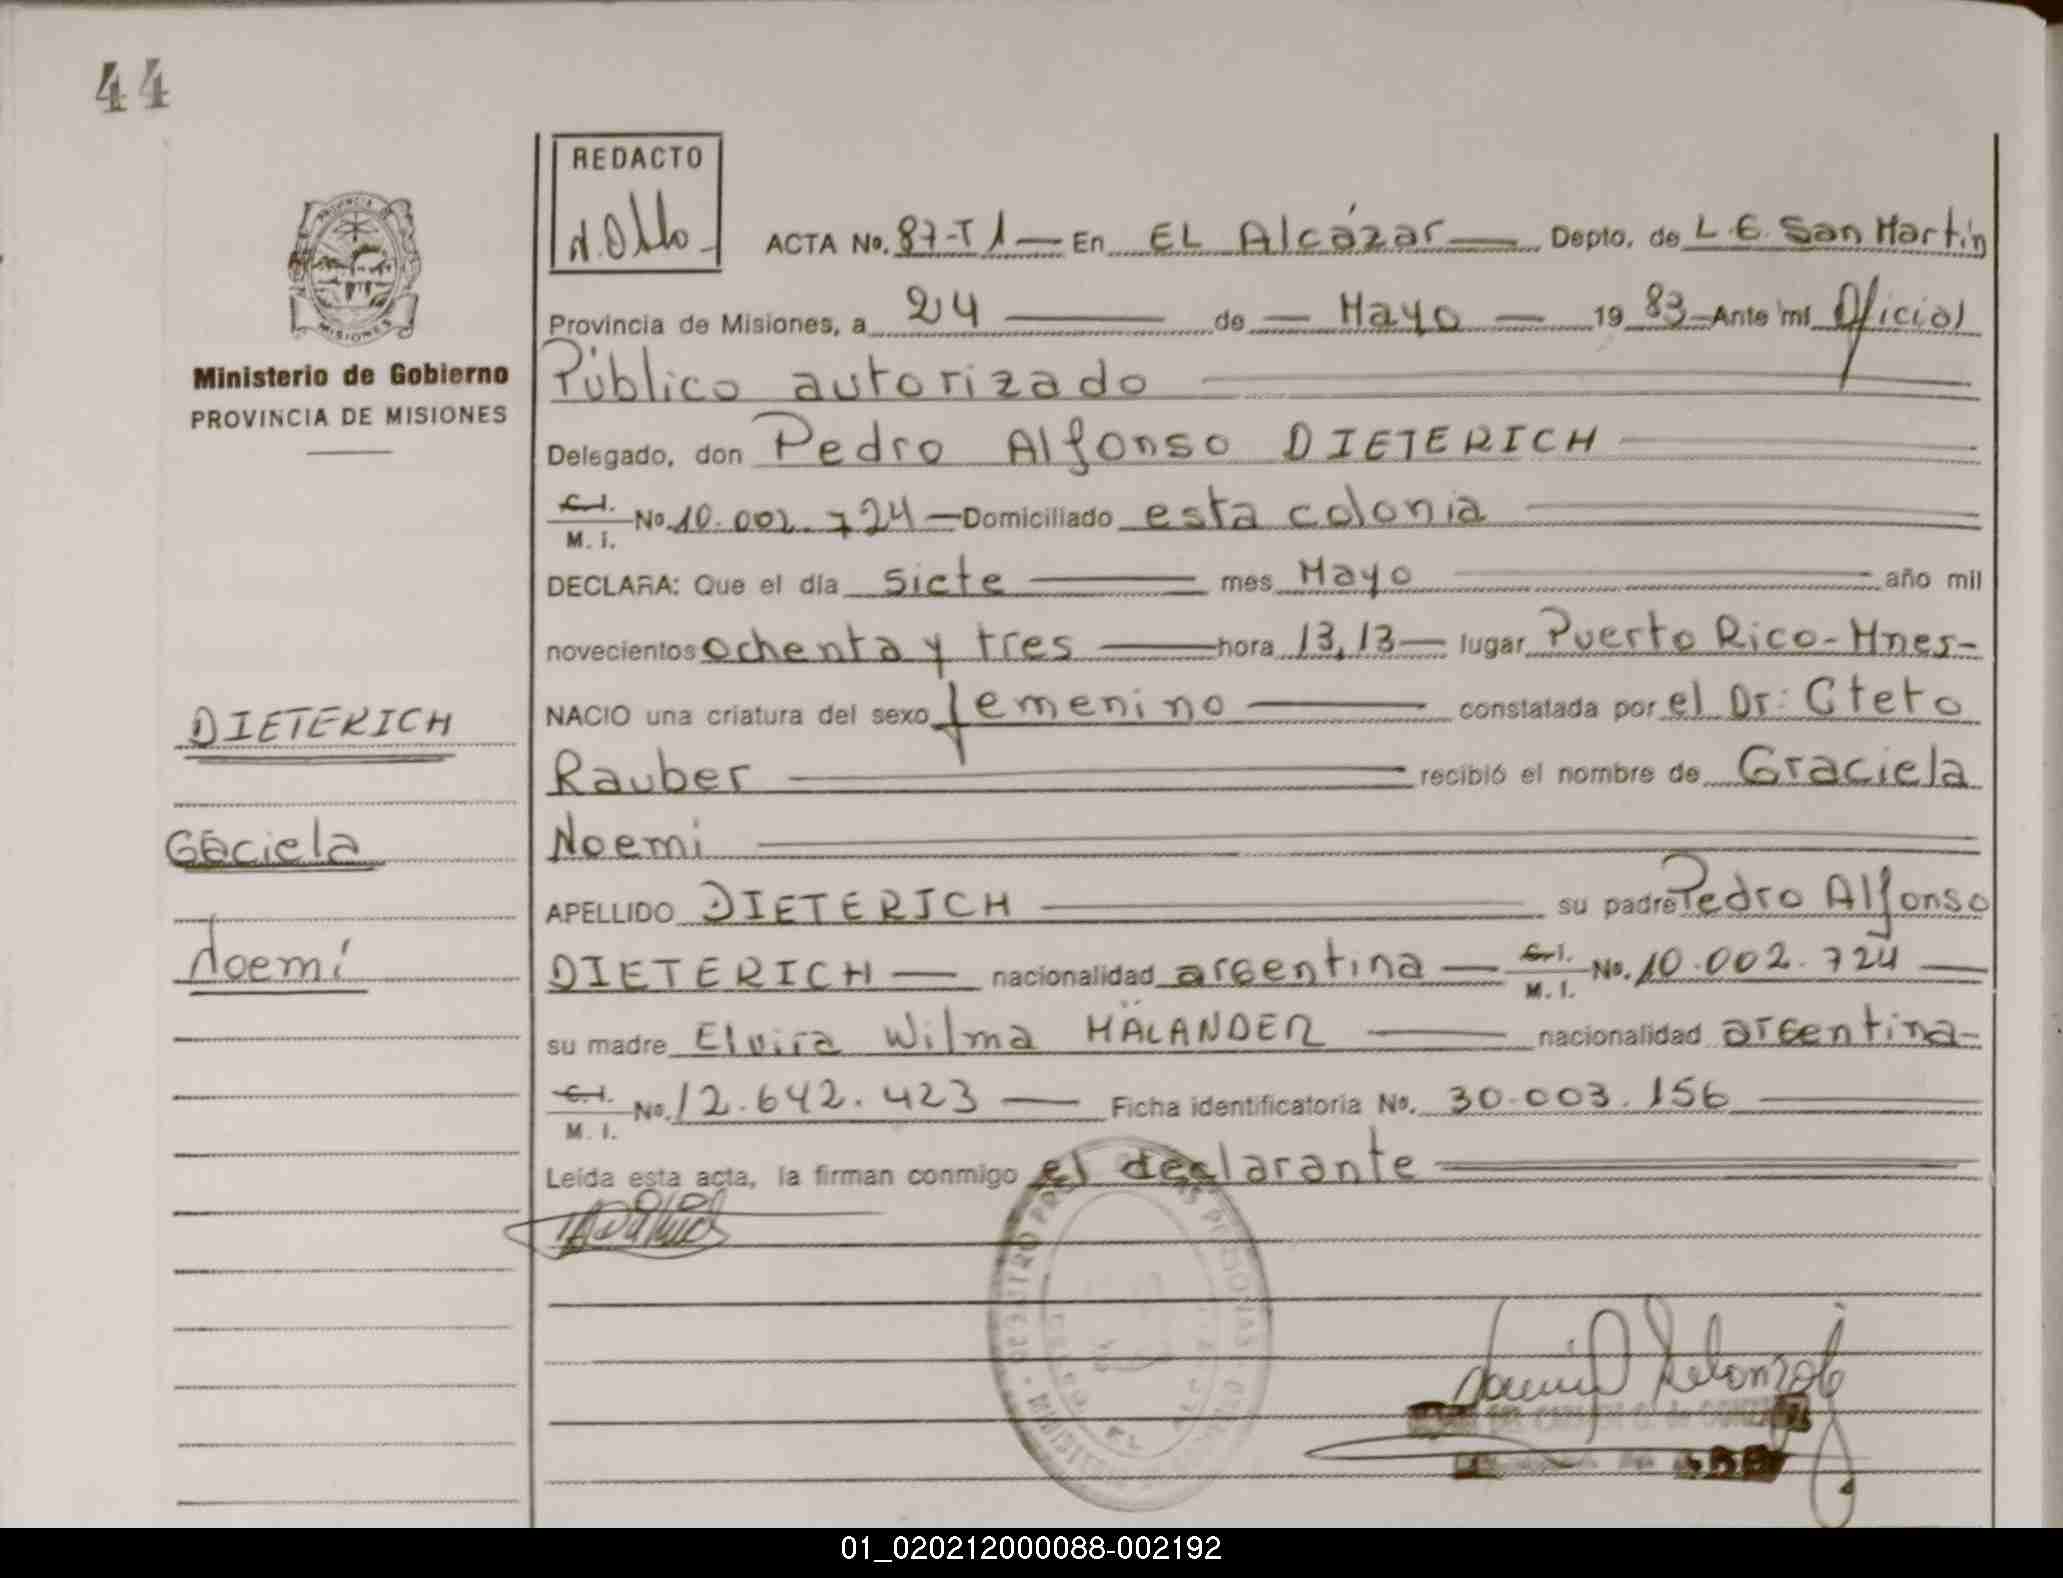 44
REDACTO
PROVINCIA DE
MISIONES
ACTA No. 87-T1 — En EL Alcázar — Depto. de L.G. San Martín
Provincia de Misiones, a 24 — de — Mayo — 19 83 — Ante mí Oficial
Ministerio de Gobierno
PROVINCIA DE MISIONES
Público autorizado
Delegado, don Pedro Alfonso DIETERICH
C.I. M.I. No. 10.002.724 — Domiciliado esta colonia
DECLARA: Que el día siete — mes Mayo — año mil
novecientos ochenta y tres — hora 13,13 — lugar Puerto Rico-Mnes-
DIETERICH
NACIO una criatura del sexo femenino — constatada por el Dr: Cleto
Rauber — recibió el nombre de Graciela
Gaciela
Noemi
APELLIDO DIETERICH — su padre Pedro Alfonso
Noemí
DIETERICH — nacionalidad argentina — C.I. M.I. No. 10.002.724 —
su madre Elvira Wilma HÄLANDER — nacionalidad argentina-
C.I. M.I. No. 12.642.423 — Ficha identificatoria No. 30.003.156
Leída esta acta, la firman conmigo el declarante
01_020212000088-002192